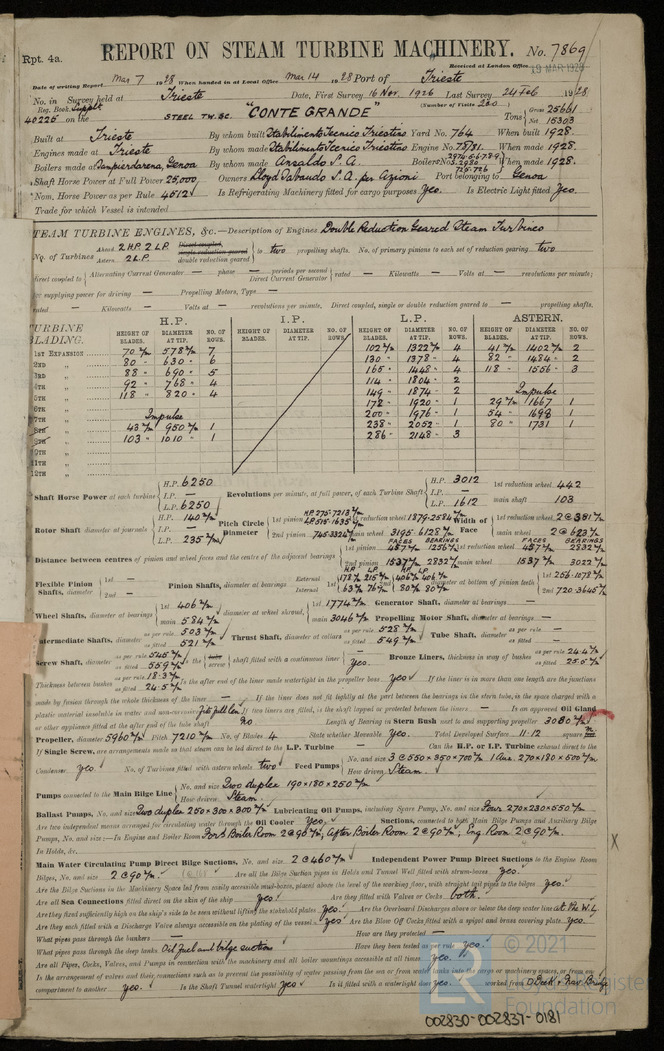 Rpt. 4a.
REPORT ON STEAM TURBINE MACHINERY. No. 7869
Received at London Office 19 MAR 1928
Date of writing Report Mar 7 1928 When handed in at Local Office Mar 14 1928 Port of Trieste
No. in Reg. Book. Survey held at Trieste Date, First Survey 16 Nov. 1926 Last Survey 24 Feb 1928
(Number of Visits 200)
40225 on the STEEL TW. SC. "CONTE GRANDE" Tons Gross 25661 Net 15303
Built at Trieste By whom built Stabilimento Tecnico Triestino Yard No. 764 When built 1928.
Engines made at Trieste By whom made Stabilimento Tecnico Triestino Engine No. When made 1928.
Boilers made at Sampierdarena, Genoa By whom made Ansaldo S. A. Boiler No. When made 1928.
Shaft Horse Power at Full Power 25,000 Owners Lloyd Sabaudo S. A. per Azioni Port belonging to Genoa
Nom. Horse Power as per Rule 4512 Is Refrigerating Machinery fitted for cargo purposes Yes. Is Electric Light fitted Yes.
Trade for which Vessel is intended
STEAM TURBINE ENGINES, &c.—Description of Engines Double Reduction Geared Steam Turbines
No. of Turbines Ahead 2 H.P. 2 L.P. Astern 2 L.P. Direct coupled, single reduction geared double reduction geared to two propelling shafts. No. of primary pinions to each set of reduction gearing two
direct coupled to Alternating Current Generator — phase — periods per second Direct Current Generator rated — Kilowatts — Volts at — revolutions per minute;
for supplying power for driving — Propelling Motors, Type —
rated — Kilowatts — Volts at — revolutions per minute. Direct coupled, single or double reduction geared to — propelling shafts.
TURBINE BLADING. H.P. I.P. L.P. ASTERN.
HEIGHT OF BLADES. DIAMETER AT TIP. NO. OF ROWS. HEIGHT OF BLADES. DIAMETER AT TIP. NO. OF ROWS. HEIGHT OF BLADES. DIAMETER AT TIP. NO. OF ROWS. HEIGHT OF BLADES. DIAMETER AT TIP. NO. OF ROWS.
1ST EXPANSION 70 m/m 578 m/m 7 102 m/m 1322 m/m 4 41 m/m 1402 m/m 2
2ND " 80 " 630 " 6 130 " 1378 " 4 82 " 1484 " 2
3RD " 88 " 690 " 5 165 " 1448 " 4 118 " 1556 " 3
4TH " 92 " 768 " 4 114 " 1804 " 2
5TH " 118 " 820 " 4 149 " 1874 " 2 Impulse
6TH " 172 " 1920 " 1 29 m/m 1667 1
7TH " Impulse 200 " 1976 " 1 54 " 1698 1
8TH " 43 m/m 950 m/m 1 238 " 2052 " 1 80 " 1731 1
9TH " 103 " 1010 " 1 286 " 2148 " 3
10TH "
11TH "
12TH "
Shaft Horse Power at each turbine H.P. 6250 I.P. — L.P. 6250 Revolutions per minute, at full power, of each Turbine Shaft H.P. 3012 I.P. — L.P. 1612 1st reduction wheel 442 main shaft 103
Rotor Shaft diameter at journals H.P. 140 m/m I.P. — L.P. 235 m/m Pitch Circle Diameter 1st pinion 1st reduction wheel Width of Face 1st reduction wheel 2 @ 381 m/m
2nd pinion main wheel main wheel 2 @ 623 m/m
Distance between centres of pinion and wheel faces and the centre of the adjacent bearings FACES BEARINGS FACES BEARINGS
1st pinion 1st reduction wheel
2nd pinion 1537 m/m 2832 m/m main wheel 1537 m/m 3022 m/m
Flexible Pinion Shafts, diameter 1st — 2nd — Pinion Shafts, diameter at bearings External Internal diameter at bottom of pinion teeth
Wheel Shafts, diameter at bearings 1st 406 m/m main 584 m/m diameter at wheel shroud, 1st 1774 m/m main 3046 m/m Generator Shaft, diameter at bearings — Propelling Motor Shaft, diameter at bearings —
Intermediate Shafts, diameter as per rule 503 m/m as fitted 521 m/m Thrust Shaft, diameter at collars as per rule 528 m/m as fitted 549 m/m Tube Shaft, diameter as per rule — as fitted —
Screw Shaft, diameter as per rule 545 m/m as fitted 559 m/m Is the tube screw shaft fitted with a continuous liner Yes. Bronze Liners, thickness in way of bushes as per rule 24.4 m/m as fitted 25.5 m/m
Thickness between bushes as per rule 18.3 m/m as fitted 24.5 m/m Is the after end of the liner made watertight in the propeller boss Yes If the liner is in more than one length are the junctions
made by fusion through the whole thickness of the liner — If the liner does not fit tightly at the part between the bearings in the stern tube, is the space charged with a
plastic material insoluble in water and non-corrosive fits full len. If two liners are fitted, is the shaft lapped or protected between the liners — Is an approved Oil Gland
or other appliance fitted at the after end of the tube shaft No Length of Bearing in Stern Bush next to and supporting propeller 3080 m/m
Propeller, diameter 5960 m/m Pitch 7210 m/m No. of Blades 4 State whether Moveable Yes. Total Developed Surface 11.12 square
If Single Screw, are arrangements made so that steam can be led direct to the L.P. Turbine — Can the H.P. or I.P. Turbine exhaust direct to the
Condenser Yes. No. of Turbines fitted with astern wheels two Feed Pumps No. and size 3 @ 550 x 350 x 700 m/m 1 Aux. 270 x 180 x 500 m/m How driven Steam.
Pumps connected to the Main Bilge Line No. and size Two duplex 190 x 180 x 250 m/m How driven Steam.
Ballast Pumps, No. and size Two duplex 250 x 300 x 300 m/m Lubricating Oil Pumps, including Spare Pump, No. and size Four 270 x 230 x 550 m/m
Are two independent means arranged for circulating water through the Oil Cooler Yes. Suctions, connected to both Main Bilge Pumps and Auxiliary Bilge
Pumps, No. and size:—In Engine and Boiler Room For'd Boiler Room 2 @ 90 m/m, After Boiler Room 2 @ 90 m/m, Eng. Room 2 @ 90 m/m.
In Holds, &c.
Main Water Circulating Pump Direct Bilge Suctions, No. and size 2 @ 460 m/m Independent Power Pump Direct Suctions to the Engine Room
Bilges, No. and size 2 @ 90 m/m. Are all the Bilge Suction pipes in Holds and Tunnel Well fitted with strum-boxes Yes.
Are the Bilge Suctions in the Machinery Space led from easily accessible mud-boxes, placed above the level of the working floor, with straight tail pipes to the bilges Yes.
Are all Sea Connections fitted direct on the skin of the ship Yes. Are they fitted with Valves or Cocks both.
Are they fixed sufficiently high on the ship's side to be seen without lifting the stokehold plates Yes. Are the Overboard Discharges above or below the deep water line at the W.L.
Are they each fitted with a Discharge Valve always accessible on the plating of the vessel Yes. Are the Blow Off Cocks fitted with a spigot and brass covering plate Yes.
What pipes pass through the bunkers — How are they protected —
What pipes pass through the deep tanks Oil fuel and bilge suctions Have they been tested as per rule Yes.
Are all Pipes, Cocks, Valves, and Pumps in connection with the machinery and all boiler mountings accessible at all times Yes.
Is the arrangement of valves and their connections such as to prevent the possibility of water passing from the sea or from water tanks into the cargo or machinery spaces, or from one
compartment to another Yes. Is the Shaft Tunnel watertight Yes Is it fitted with a watertight door Yes. worked from D Deck & Nav. Bridge
X
LR © 2021
Lloyd's Register
Foundation
002830-002837-0181